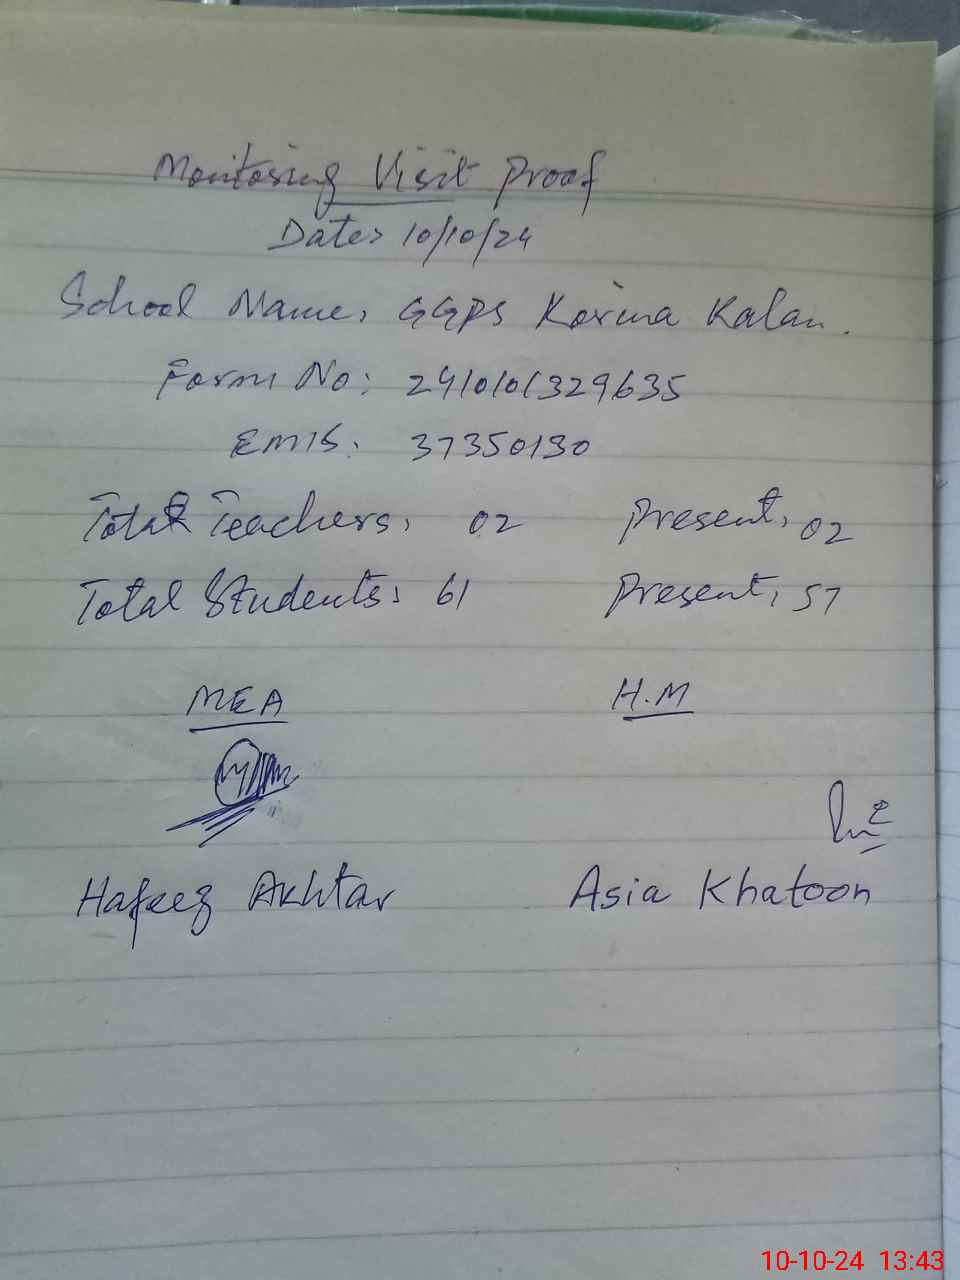 Monitoring Visit Proof
Date: 10/10/24
School Name: GGPS Korina Kalan.
Form No: 2410101329635
EMIS: 37350130
Total Teachers: 02 Present: 02
Total Students: 61 Present: 57
MEA H.M
Hafeez Akhtar Asia Khatoon
10-10-24 13:43